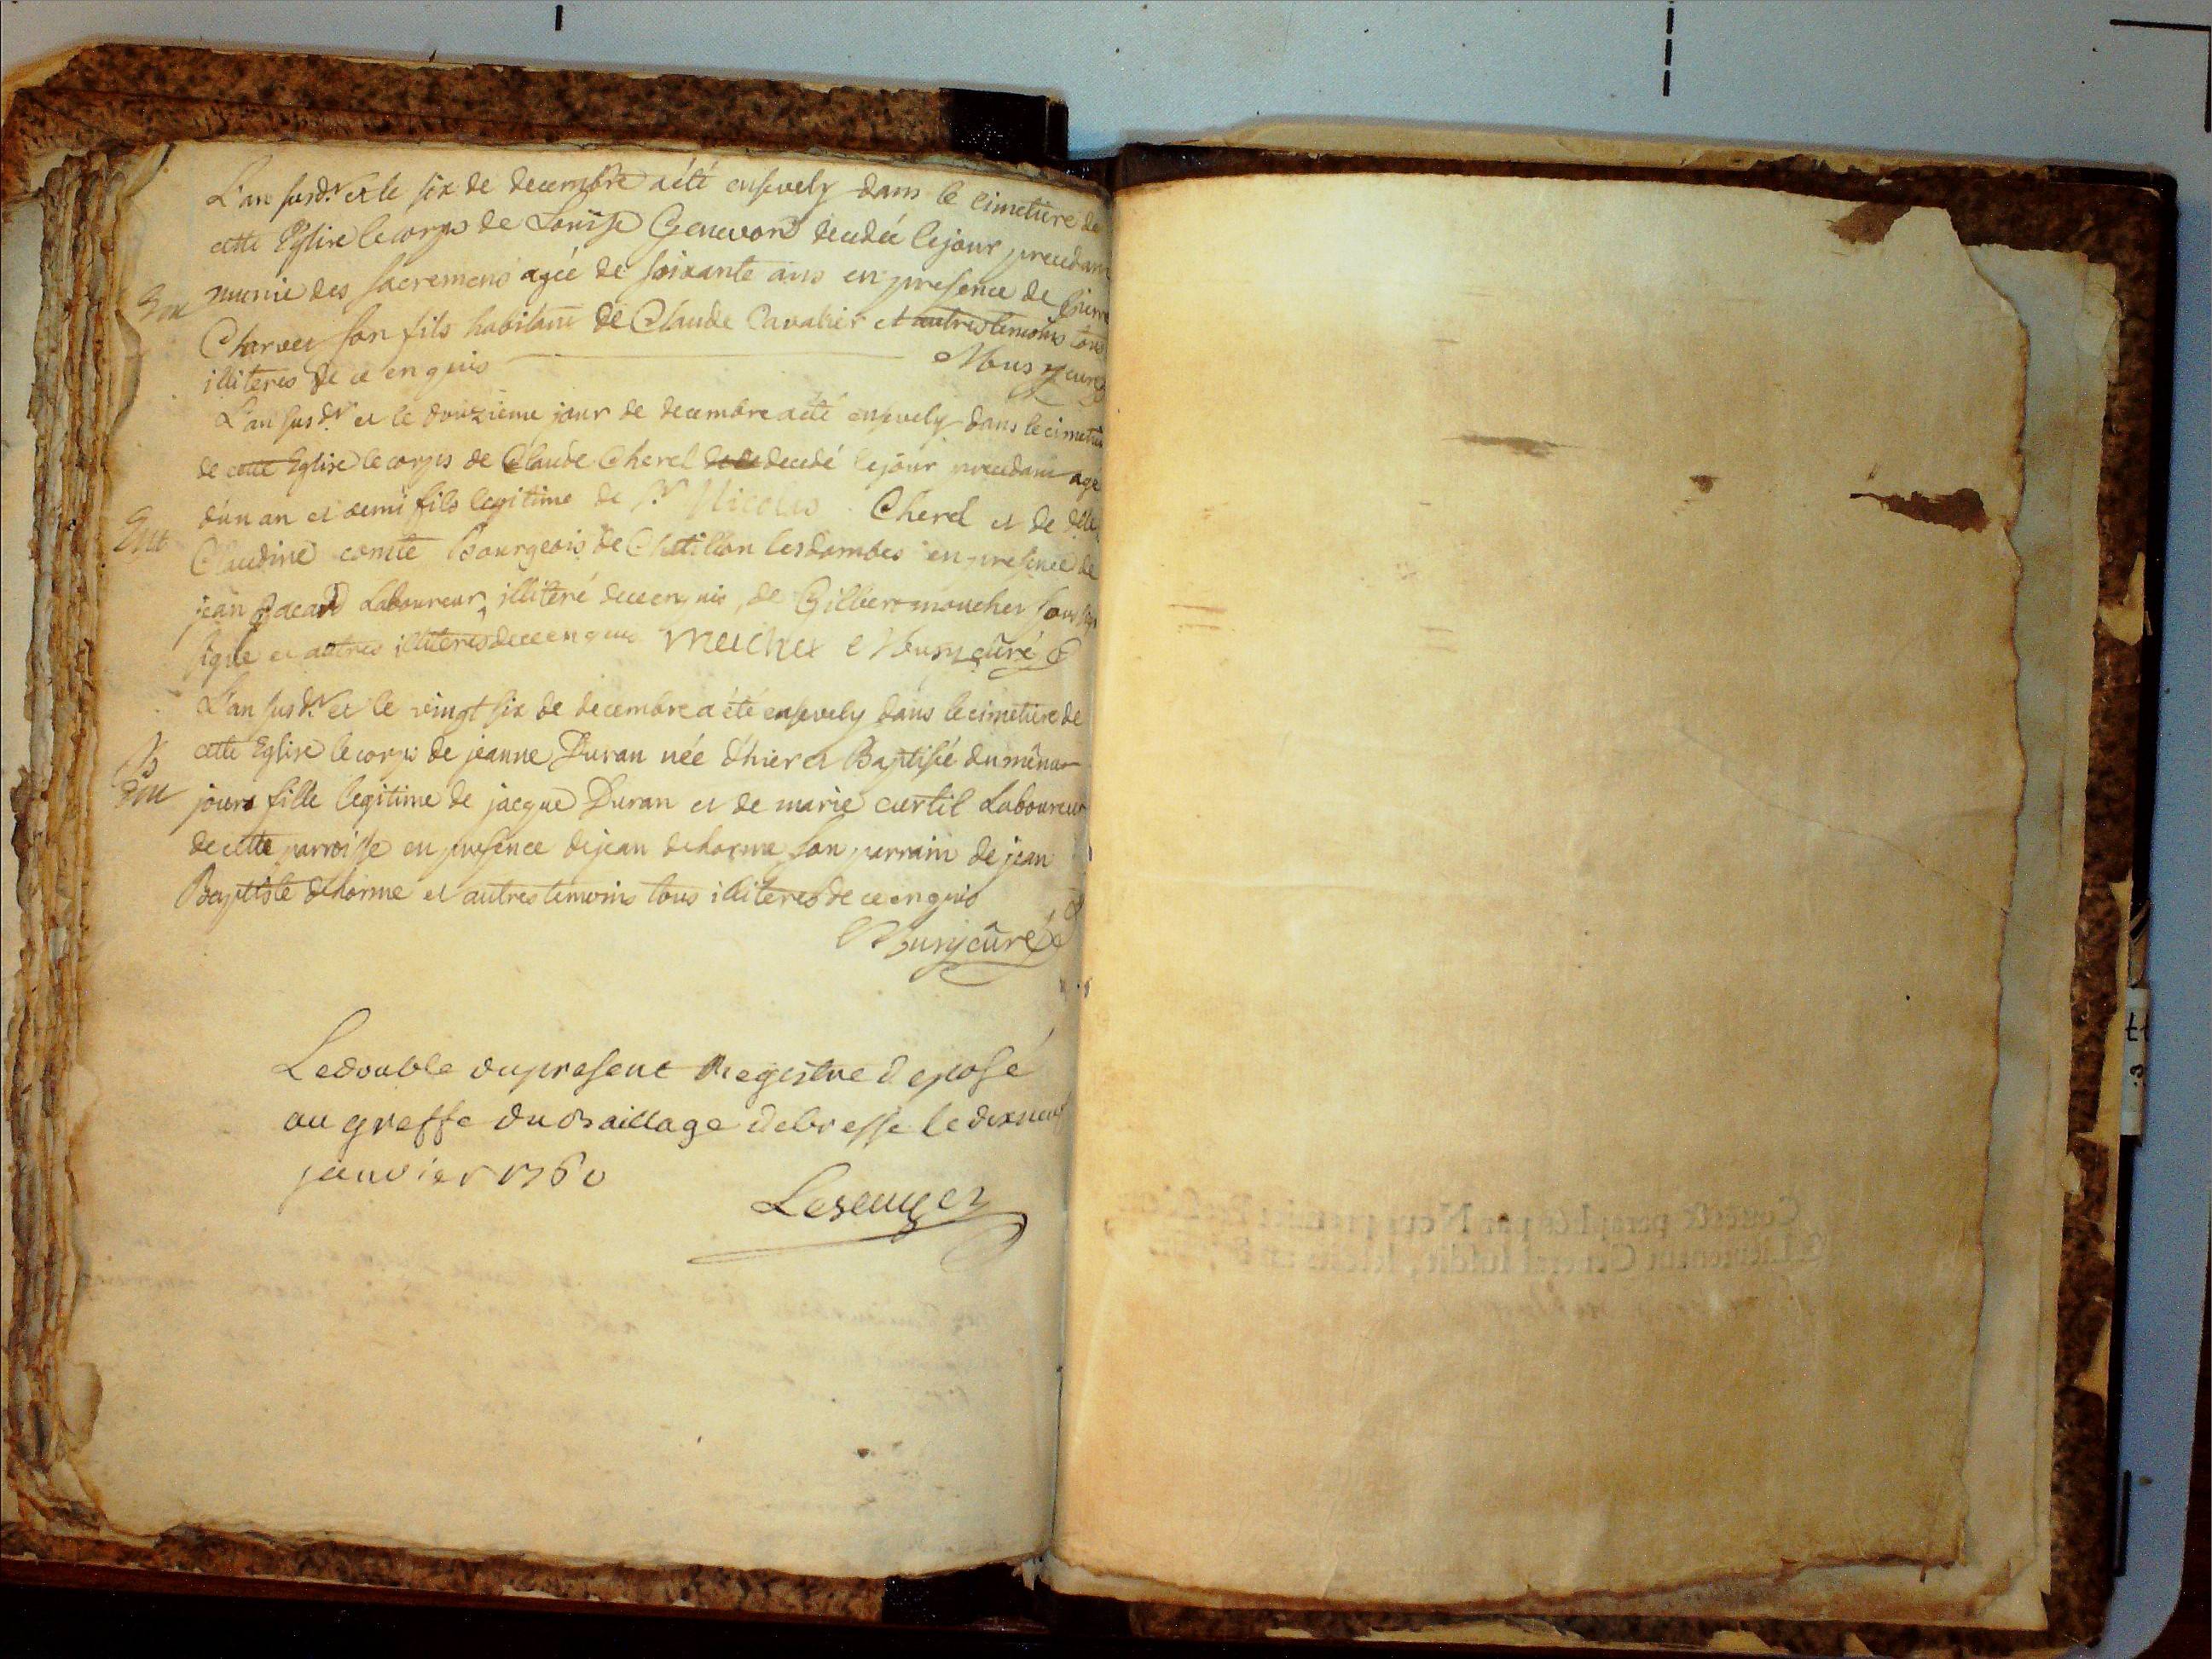 L'an susd.t et le six de decembre a été ensevely dans le cimetiere de
cette Eglise le corps de Louïse Genevord decedée le jour precedant
Ent
munie des sacremens agée de soixante ans en presence de pierre
Charvet son fils habitant de Claude Cavalier et autres temoins tous
illiteres de ce enquis
curé
L'an susd.t et le douzieme jour de decembre a été ensevely dans le cimetiere
de cette Eglise le corps de Claude Cherel decedé le jour precedant agé
d'un an et demi fils legitime de s.r Nicolas Cherel et de d.lle
Ent
Claudine comte Bourgeois de Chatillon les dombes en presence de
jean Laboureur illiteré de ce enquis, de Gilbert mouchet
signé et autres illiterés de ce enquis Meichet curé
L'an susd.t et le vingt six de decembre a été ensevely dans le cimetiere de
cette Eglise le corps de jeanne Duran née d'hier et Baptisée du même
B
Ent
jours fille legitime de jacque Duran et de marie curtil Laboureur
de cette parroisse en presence de jean dehorme son parrain de jean
Baptiste dehorme et autres temoins tous illiteres de ce enquis
curé
Le double du present Registre deposé
au greffe du Baillage de bresse le dixneuf
janvier 1760
Couttée paraphée par Nous premier
Lieutenant General susdit,